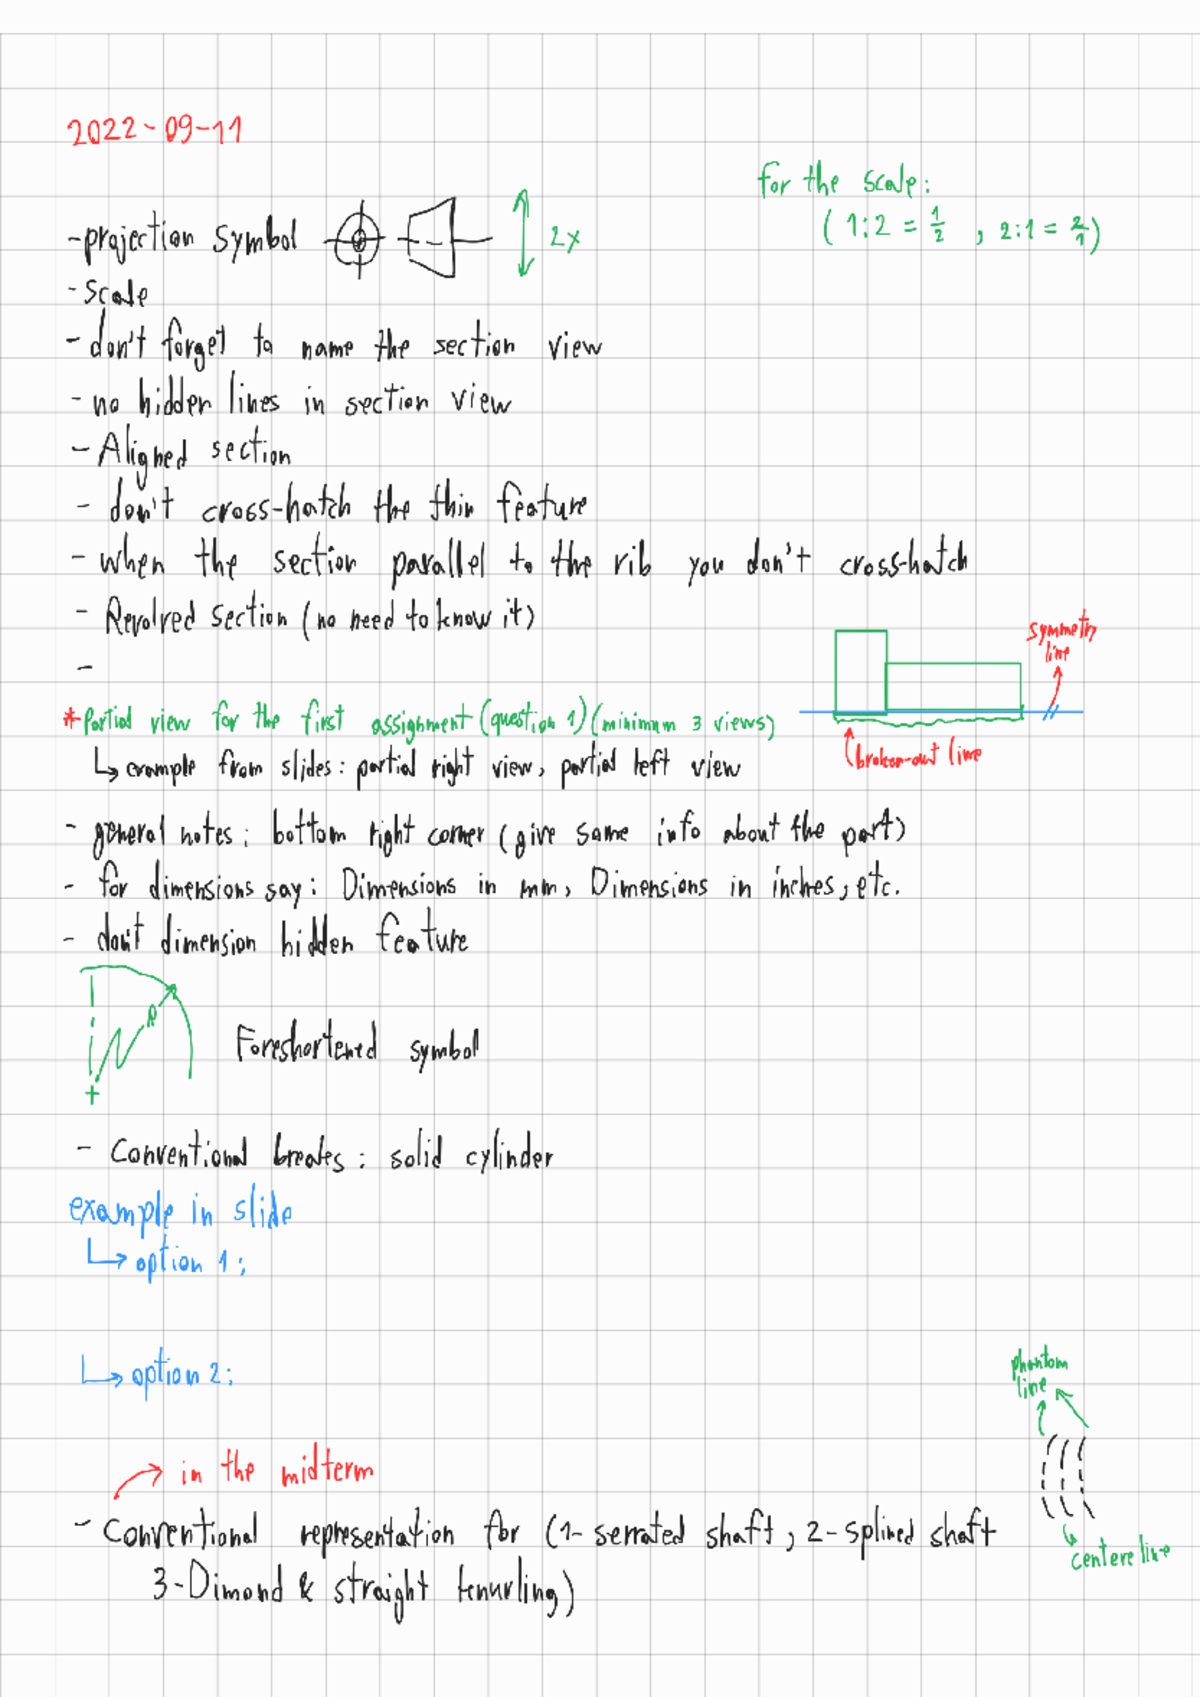 2022-09-11
for the scale:
(1:2 = 1/2 , 2:1 = 2/1)
-projection symbol
2x
-scale
- don't forget to name the section view
- no hidden lines in section view
- Aligned section
- don't cross-hatch the thin feature
- when the section parallel to the rib you don't cross-hatch
- Revolved section (no need to know it)
-
symmetry
line
*Partial view for the first assignment (question 1) (minimum 3 views)
↳ example from slides: partial right view, partial left view
broken-out line
- general notes: bottom right corner (give some info about the part)
- for dimensions say: Dimensions in mm, Dimensions in inches, etc.
- don't dimension hidden feature
R
Foreshortened symbol
- Conventional breakes: solid cylinder
example in slide
↳ option 1:
↳ option 2:
phantom
line
in the midterm
- Conventional representation for (1- serrated shaft, 2- splined shaft
3- Dimond & straight knurling)
centere line